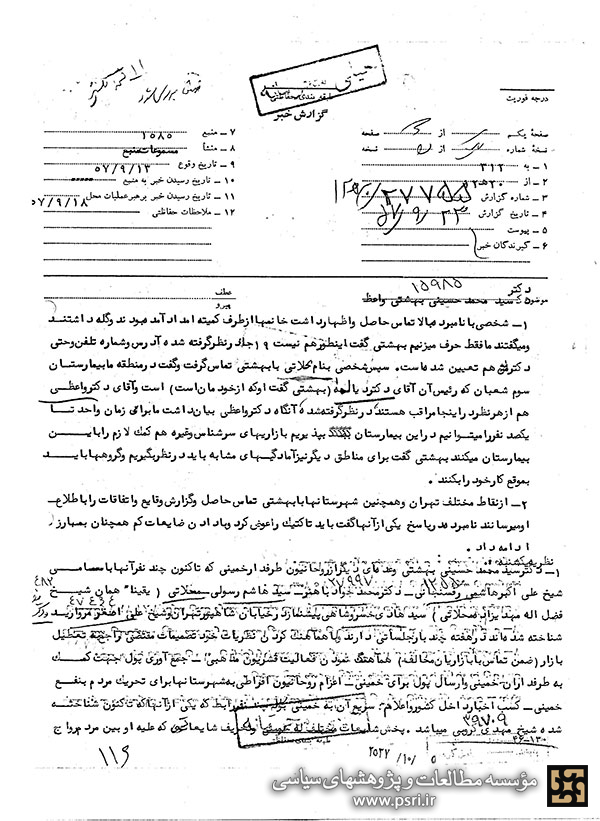 خمینی
طبقه بندی حفاظتی
گزارش خبر
درجه فوریت
صفحه یکم از صفحه
نسخه شماره از نسخه
۱ - به ۳۱۲
۲ - از ۲۰ه۲
۳ - شماره گزارش
۴ - تاریخ گزارش
۵ - پیوست
۶ - گیرندگان خبر
۷ - منبع ۱۵۸۵
۸ - منشأ مسموعات منبع
۹ - تاریخ وقوع ۵۷/۹/۱۳
۱۰ - تاریخ رسیدن خبر به منبع
۱۱ - تاریخ رسیدن خبر برهبر عملیات محل ۵۷/۹/۱۸
۱۲ - ملاحظات حفاظتی
دکتر ۱۵۹۸۵
موضوع : سید محمد حسینی بهشتی واعظ
عطف
پیرو
۱- شخصی با نامبرده بالا تماس حاصل واظهارداشت خانمها ازطرف کمیته امداد آمده بودند وگله داشتند
ومیگفتند ما فقط حرف میزنیم بهشتی گفت اینطورهم نیست ۱۹ جا درنظرگرفته شده آدرس وشماره تلفن وحتی
دکترش هم تعیین شده است. سپس شخصی بنام محلاتی با بهشتی تماس گرفت وگفت درمنطقه ما بیمارستان
سوم شعبان که رئیس آن آقای دکتر (بهشتی گفت اوکه ازخود مان است) است وآقای دکترواعظی
هم ازهرنظر دراینجا مراقب هستند درنظرگرفته شده آنگاه دکترواعظی بیان داشت ما برای زمان واحد تا
یکصد نفررا میتوانیم دراین بیمارستان بپذیریم بازاریهای سرشناس وغیره هم کمک لازم را باین
بیمارستان میکنند بهشتی گفت برای مناطق دیگرنیزآمادگیهای مشابه باید درنظربگیریم وگروهها باید
بموقع کارخود رابکنند.
۲- ازنقاط مختلف تهران وهمچنین شهرستانها با بهشتی تماس حاصل وگزارش وقایع واتفاقات را باطلاع
اومیرسانند نامبرده درپاسخ یکی ازآنها گفت باید تاکتیک راعوض کرد وبا دادن ضایعات کم همچنان بمبارزه
ادامه داد.
نظریه یکشنبه :
۱- دکترسید محمد حسینی بهشتی وعده ای دیگرازروحانیون طرفدارخمینی که تاکنون چند نفرآنها باسامی
شیخ علی اکبرهاشمی رفسنجانی- دکترمحمد جواد باهنر- سید هاشم رسولی محلاتی ( یقینا همان شیخ
فضل اله مهدیزاده محلاتی) سید هادی خسروشاهی پیشنمازدرخیابان شاهپورتهران وشیخ علی اصغرمروارید
شناخته شده اند درهفته چند بارجلساتی دارند وبا هماهنگ کردن نظریات خود تصمیمات مقتضی راجع به تعطیل
بازار (ضمن تماس با بازاریان مخالف) هماهنگ نمودن فعالیت قشریون مذهبی - جمع آوری پول جهت کمک
به طرفداران خمینی وارسال پول برای خمینی - اعزام روحانیون افراطی به شهرستانها برای تحریک مردم بنفع
خمینی- کسب اخبارداخل کشورواعلام سریع آن به خمینی که یکی ازآنها که تاکنون شناخته
شده شیخ مهدی کروبی میباشد. پخش شایعات مختلف که علیه اوبین مردم رواج
۳۹۷۰۹
۲۰۳۷/۱۰/۵
۱۱۶
مؤسسه مطالعات و پژوهشهای سیاسی
www.psri.ir